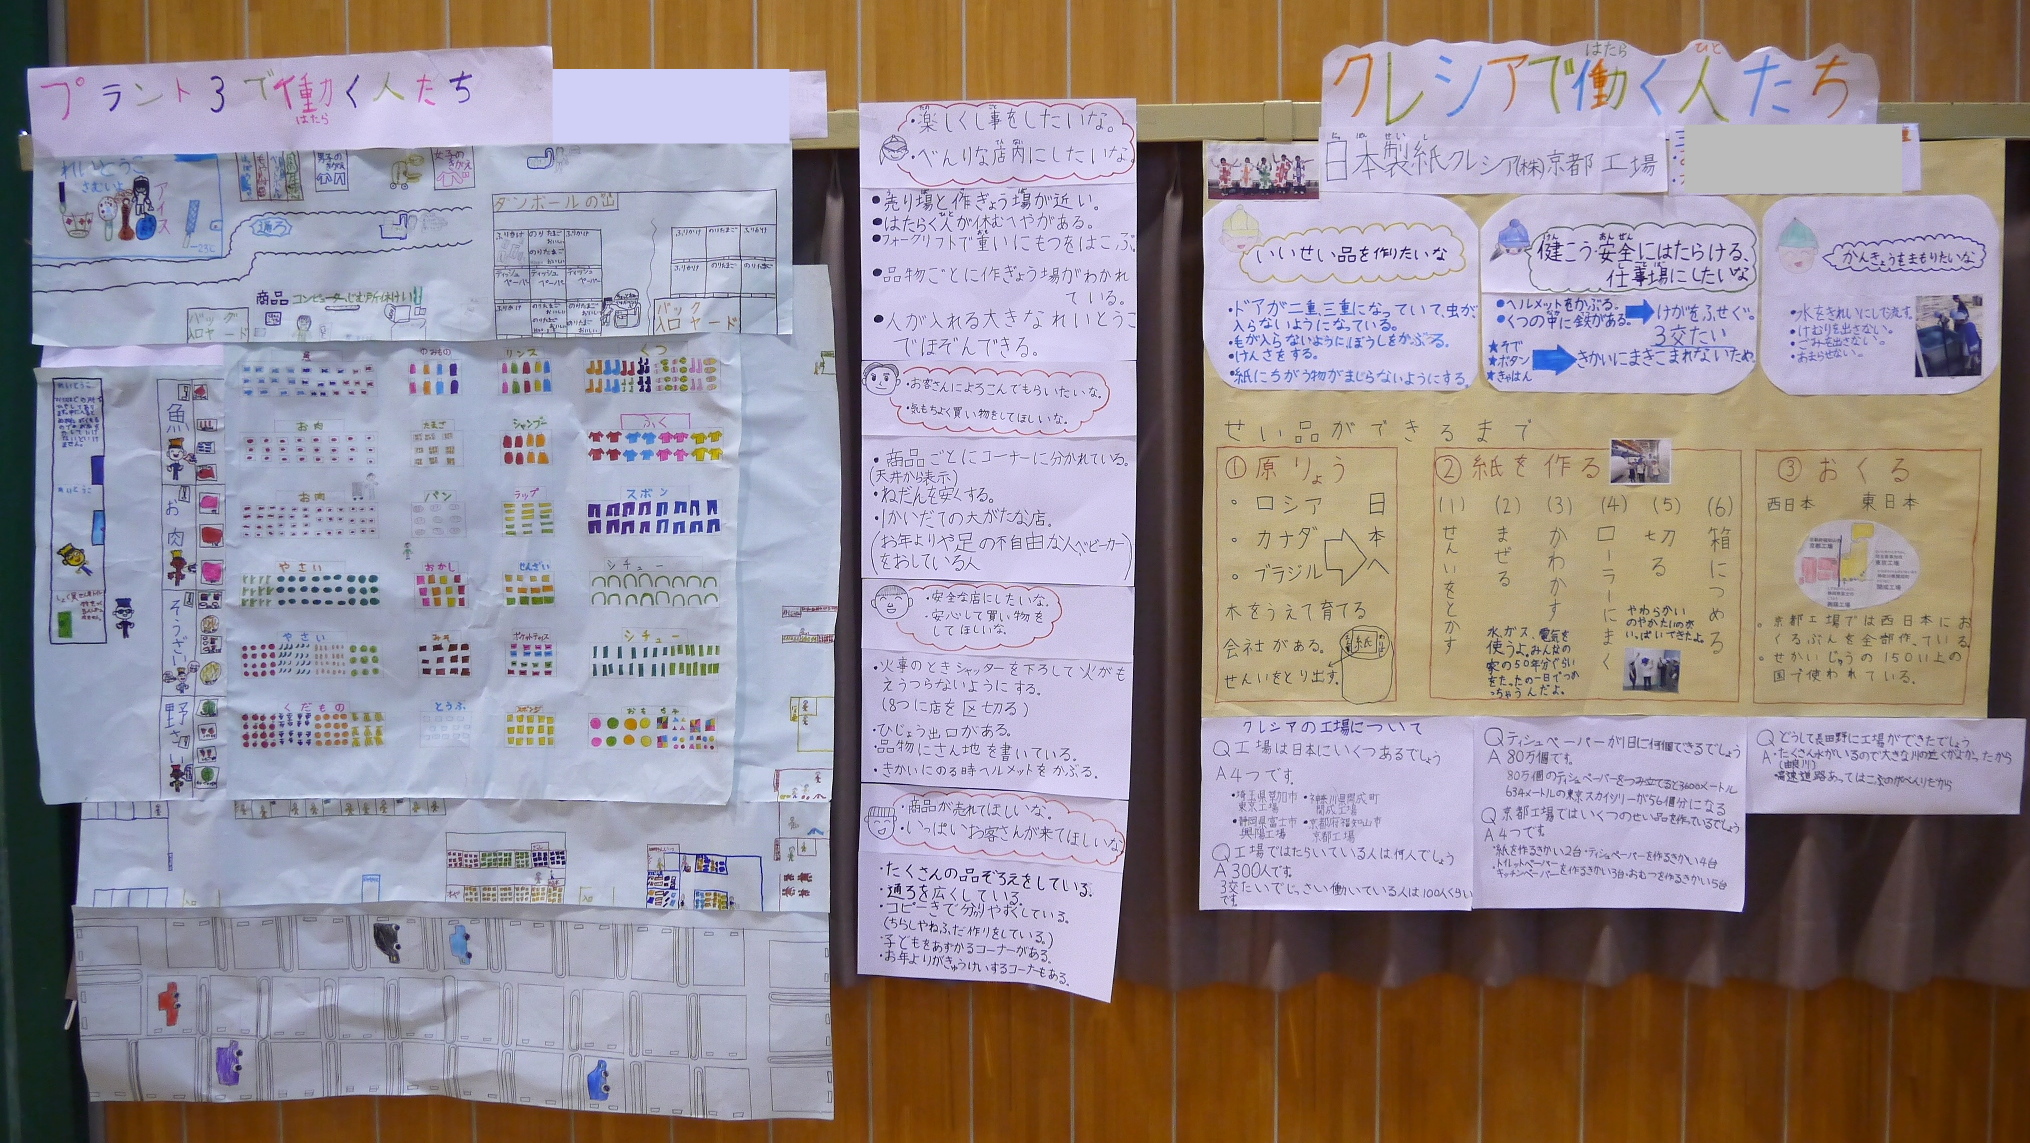 プラント3で働く人たち
はたら
れいとうこ
さむいよ
アイス
-23℃
男子の
女子の
通ろ
ダンボールの山
商品
コンピューター
バック
ヤード
入口
バック
ヤード
入口
魚
のみもの
リンス
くつ
お肉
たまご
シャンプー
ふく
お肉
パン
ラップ
ズボン
やさい
おかし
せんざい
シチュー
やさい
みそ
ポケットティッシュ
シチュー
くだもの
とうふ
スポンジ
おもちゃ
魚
お肉
そうざい
野さい
・楽しくし事をしたいな。
・べんりな店内にしたいな
●売り場と作ぎょう場が近い。
●はたらく人が休むへやがある。
●フォークリフトで重いにもつをはこぶ
●品物ごとに作ぎょう場がわかれ
ている。
●人が入れる大きなれいとうこ
でほぞんできる。
・お客さんによろこんでもらいたいな。
・気もちよく買い物をしてほしいな。
・商品ごとにコーナーに分かれている。
(天井から表示)
・ねだんを安くする。
・1かいだての大がたな店。
(お年よりや足の不自由な人ベビーカー)
をおしている人
・安全な店にしたいな。
・安心して買い物を
してほしいな。
・火事のときシャッターを下ろして火がも
えうつらないようにする。
(8つに店を区切る)
・ひじょう出口がある。
・品物にさん地を書いている。
・きかいにのる時ヘルメットをかぶる。
・商品が売れてほしいな。
・いっぱいお客さんが来てほしいな
・たくさんの品ぞろえをしている。
・通ろを広くしている。
・コピーきで分りやすくしている。
(ちらしやねふだ作りをしている。)
・子どもをあずかるコーナーがある。
・お年よりがきゅうけいするコーナーもある。
クレシアで働く人たち
はたら ひと
日本製紙クレシア(株)京都工場
いいせい品を作りたいな
・ドアが二重、三重になっていて、虫が
入らないようになっている。
・毛が入らないように、ぼうしをかぶる。
・けんさをする。
・紙にちがう物がまじらないようにする。
健こう・安全にはたらける、
仕事場にしたいな
●ヘルメットをかぶる。
●くつの中に鉄がある。
けがをふせぐ。
3交たい
★そで
★ボタン
★きゃはん
きかいにまきこまれないため。
かんきょうをまもりたいな
●水をきれいにして流す。
●けむりを出さない。
●ごみを出さない。
●あまらせない。
せい品ができるまで
①原りょう
・ロシア
・カナダ
・ブラジル
日本へ
木をうえて育てる
会社がある。
せんいをとり出す。
紙
②紙を作る
(1)せんいをとかす
(2)まぜる
(3)かわかす
(4)ローラーにまく
(5)切る
(6)箱につめる
水、ガス、電気を
使うよ。みんなの
家の50年分ぐらい
をたったの一日でつか
っちゃうんだよ。
やわらかい
のやかたいのが
いっぱいできたよ。
③おくる
西日本 東日本
京都工場
東京工場
開成工場
興陽工場
。京都工場では西日本にお
くるぶんを全部作っている
。せかいじゅうの150い上の
国で使われている。
クレシアの工場について
Q工場は日本にいくつあるでしょう
A4つです。
・埼玉県草加市
東京工場
・神奈川県開成町
開成工場
・静岡県富士市
興陽工場
・京都府福知山市
京都工場
Q工場ではたらいている人は何人でしょう
A300人です。
3交たいでじっさい働いている人は100人くらい
です。
Qティシュペーパーが1日に何個できるでしょう
A80万個です。
80万個のティシュペーパーをつみ立てると3600メートル
634メートルの東京スカイツリーが56個分になる
Q京都工場ではいくつのせい品を作っているでしょう
A4つです
・紙を作るきかい2台・ティシュペーパーを作るきかい4台
トイレットペーパー
・キッチンペーパーを作るきかい3台・おむつを作るきかい5台
Qどうして長田野に工場ができたでしょう
A・たくさん水がいるので大きな川の近くがよかったから
(由良川)
・高速道路あってはこぶのがべんりだから